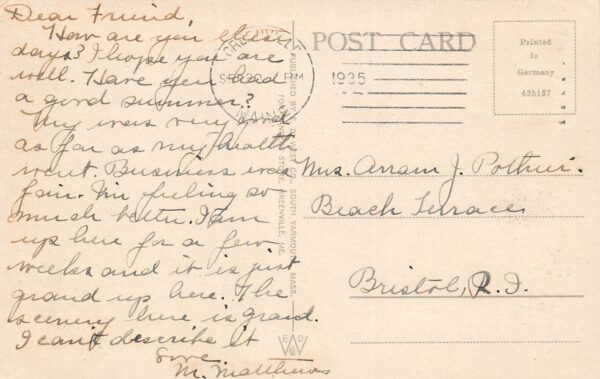 Dear Friend,
How are you these
days? I hope you are
well. Have you had
a good summer?
My was very good
as far as my health
went. Business was
fair. I'm feeling so
much better. I am
up here for a few
weeks and it is just
grand up here. The
scenery here is grand.
I can't describe it
Love
M. Matthews
GREENVILLE
SEP PM
1935
MAINE
POST CARD
Printed
in
Germany
435157
PUBLISHED BY
SOUTH YARMOUTH, MASS.
FOR STORE, GREENVILLE, ME.
Mrs. Arram J. Pothier.
Beach Terrace
Bristol, R.I.